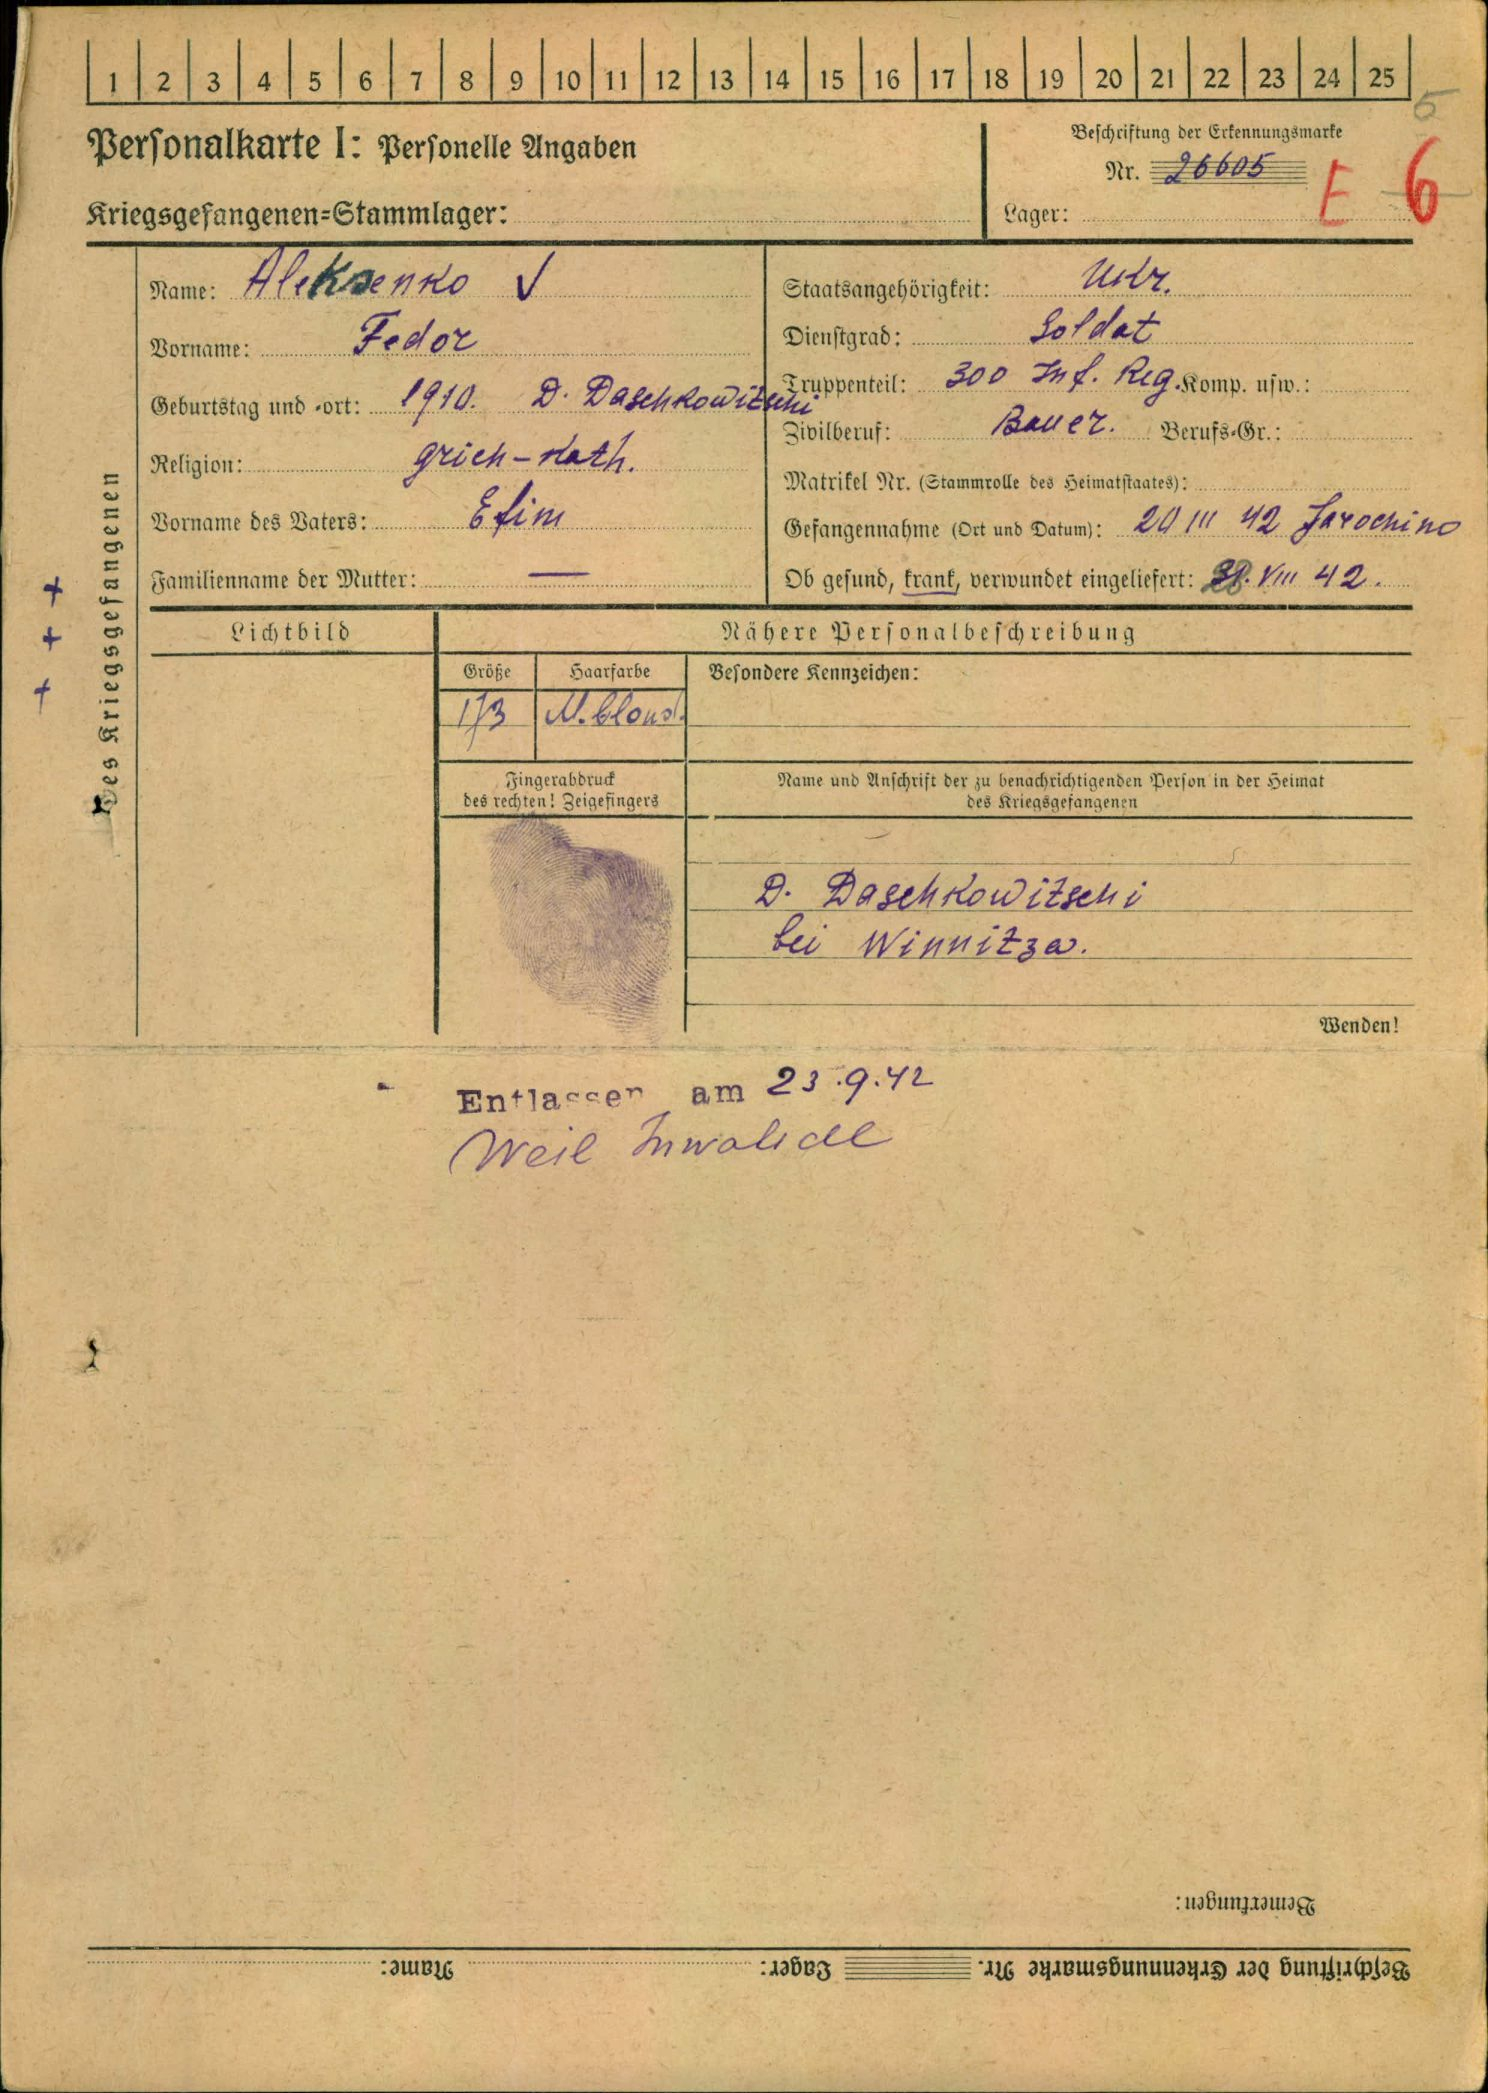 1 2 3 4 5 6 7 8 9 10 11 12 13 14 15 16 17 18 19 20 21 22 23 24 25
5
Personalkarte I: Personelle Angaben
Beschriftung der Erkennungsmarke
Nr. 26605
E 6
Kriegsgefangenen=Stammlager:
Lager:
des Kriegsgefangenen
Name: Aleksenko
Vorname: Fedor
Geburtstag und -ort: 1910. D. Daschkowitschi
Religion: grich-kath.
Vorname des Vaters: Efim
Familienname der Mutter: —
Staatsangehörigkeit: Ukr.
Dienstgrad: Soldat
Truppenteil: 300 Inf. Reg. Komp. usw.:
Zivilberuf: Bauer. Berufs=Gr.:
Matrikel Nr. (Stammrolle des Heimatstaates):
Gefangennahme (Ort und Datum): 20 III 42 Jarochino
Ob gesund, krank, verwundet eingeliefert: VIII 42.
+ + +
Lichtbild
Nähere Personalbeschreibung
Größe
Haarfarbe
Besondere Kennzeichen:
173
blond.
Fingerabdruck
des rechten! Zeigefingers
Name und Anschrift der zu benachrichtigenden Person in der Heimat
des Kriegsgefangenen
D. Daschkowitschi
bei Winnitza.
Wenden!
Entlassen am 23.9.42
Weil Inwalide
Bemerkungen:
Beschriftung der Erkennungsmarke Nr. Lager: Name: